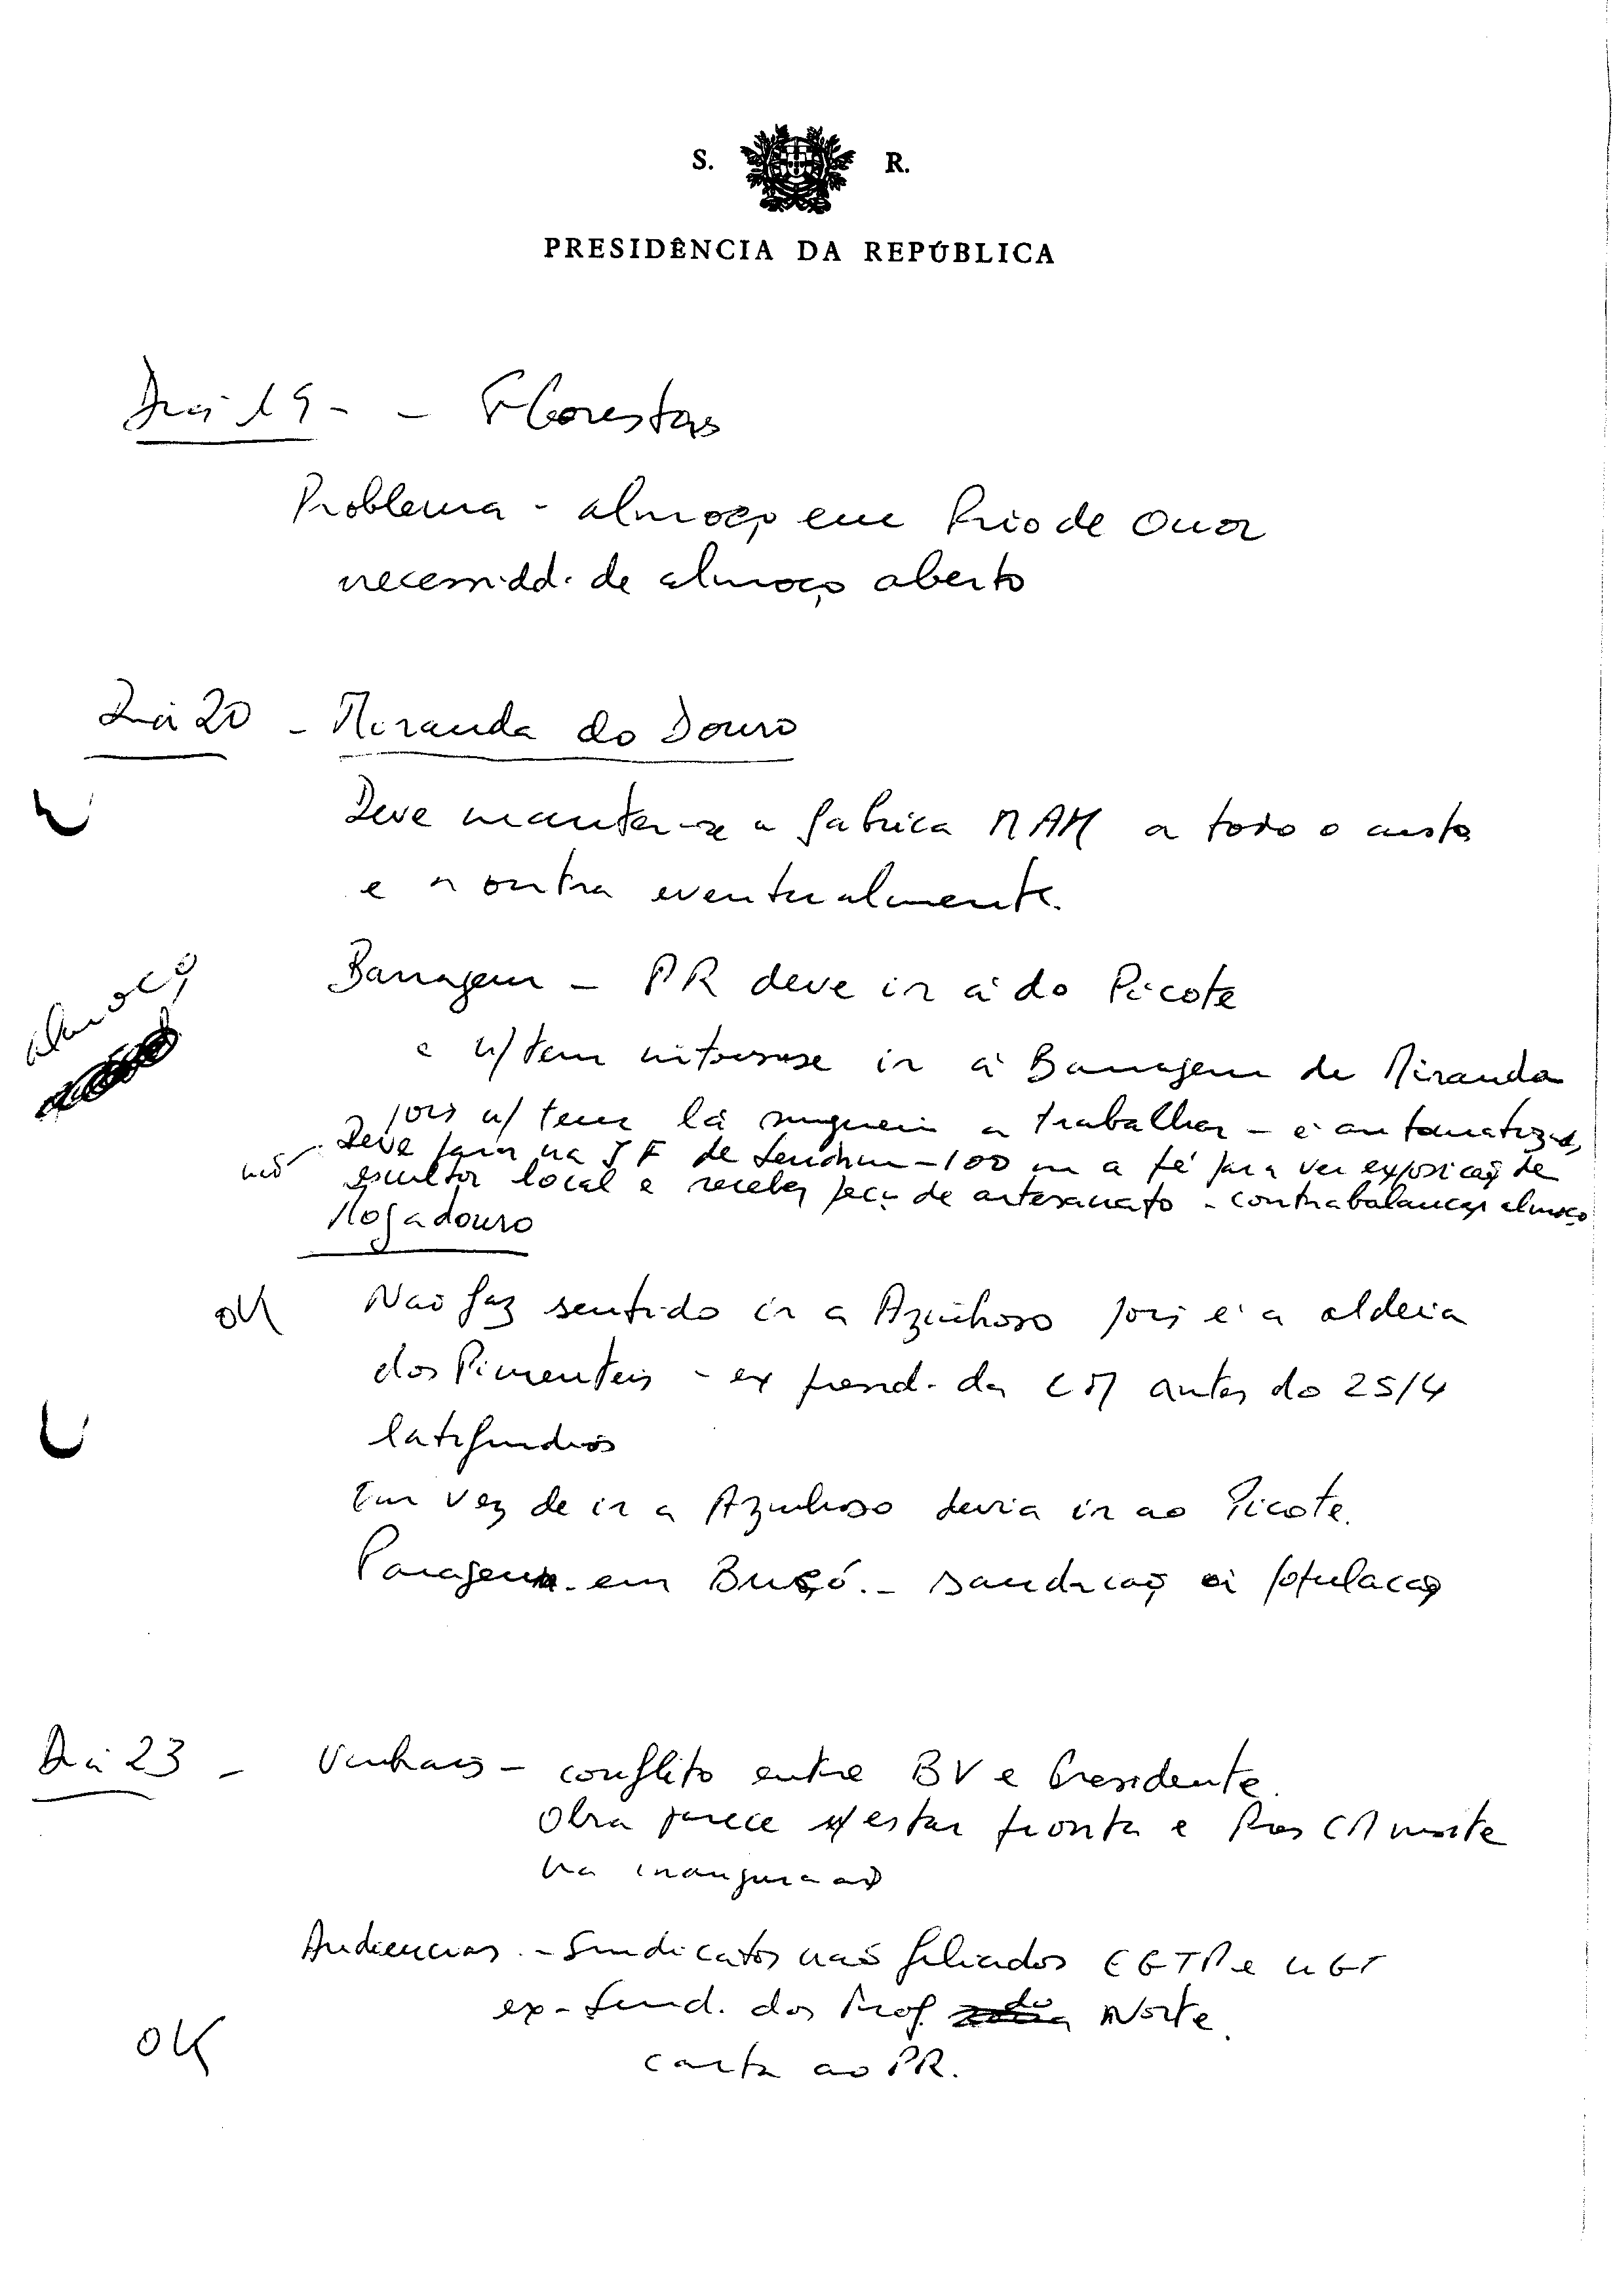 S. R.
PRESIDÊNCIA DA REPÚBLICA
Dia 19 - - Florestas
Problema - almoço em Rio de Onor
necessidd. de almoço aberto
Dia 20 - Miranda do Douro
Deve manter-se a fabrica MAM a todo o custo
e a outra eventualmente.
almoço
Barragem - PR deve ir à do Picote
e n/ tem interesse ir à Barragem de Miranda
pois n/ tem lá ninguem a trabalhar - é automatizada
não - Deve parar na JF de Sendim - 100 m a pé para ver exposição de
escultor local e receber peça de artesanato - contrabalançar almoço
Mogadouro
OK Não faz sentido ir a Azinhoso pois é a aldeia
dos Pimenteis - ex presid. da CM antes do 25/4
latifundios
Em vez de ir a Azinhoso devia ir ao Picote.
Paragem em Bruçó. - saudação à população
Dia 23 - Vinhais - conflito entre BV e Presidente.
Obra parece n/ estar pronta e Pres CM insiste
na inauguração
Audiencias. - Sindicatos não filiados CGTP e UGT
ex - Sind. dos Prof. do Norte.
OK carta ao PR.